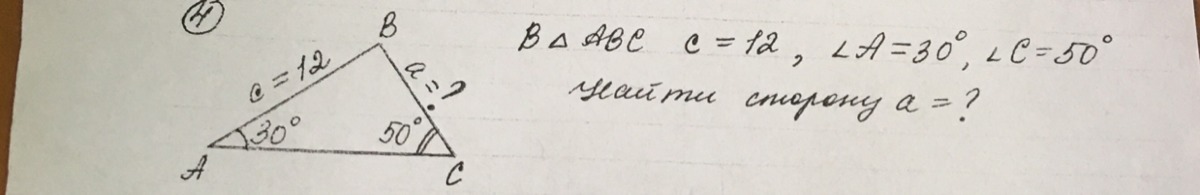 4
B
c = 12
a = ?
30°
50°
A
C
В △ ABC c = 12, ∠A = 30°, ∠C = 50°
Найти сторону a = ?